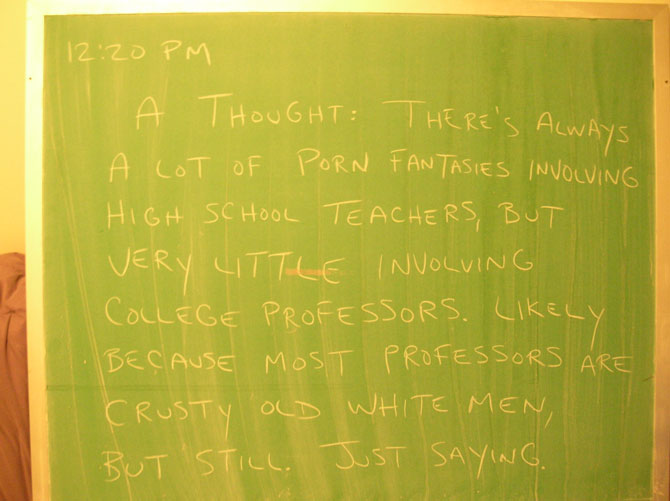 12:20 PM
A THOUGHT: THERE'S ALWAYS
A LOT OF PORN FANTASIES INVOLVING
HIGH SCHOOL TEACHERS, BUT
VERY LITTLE INVOLVING
COLLEGE PROFESSORS. LIKELY
BECAUSE MOST PROFESSORS ARE
CRUSTY OLD WHITE MEN,
BUT STILL. JUST SAYING.